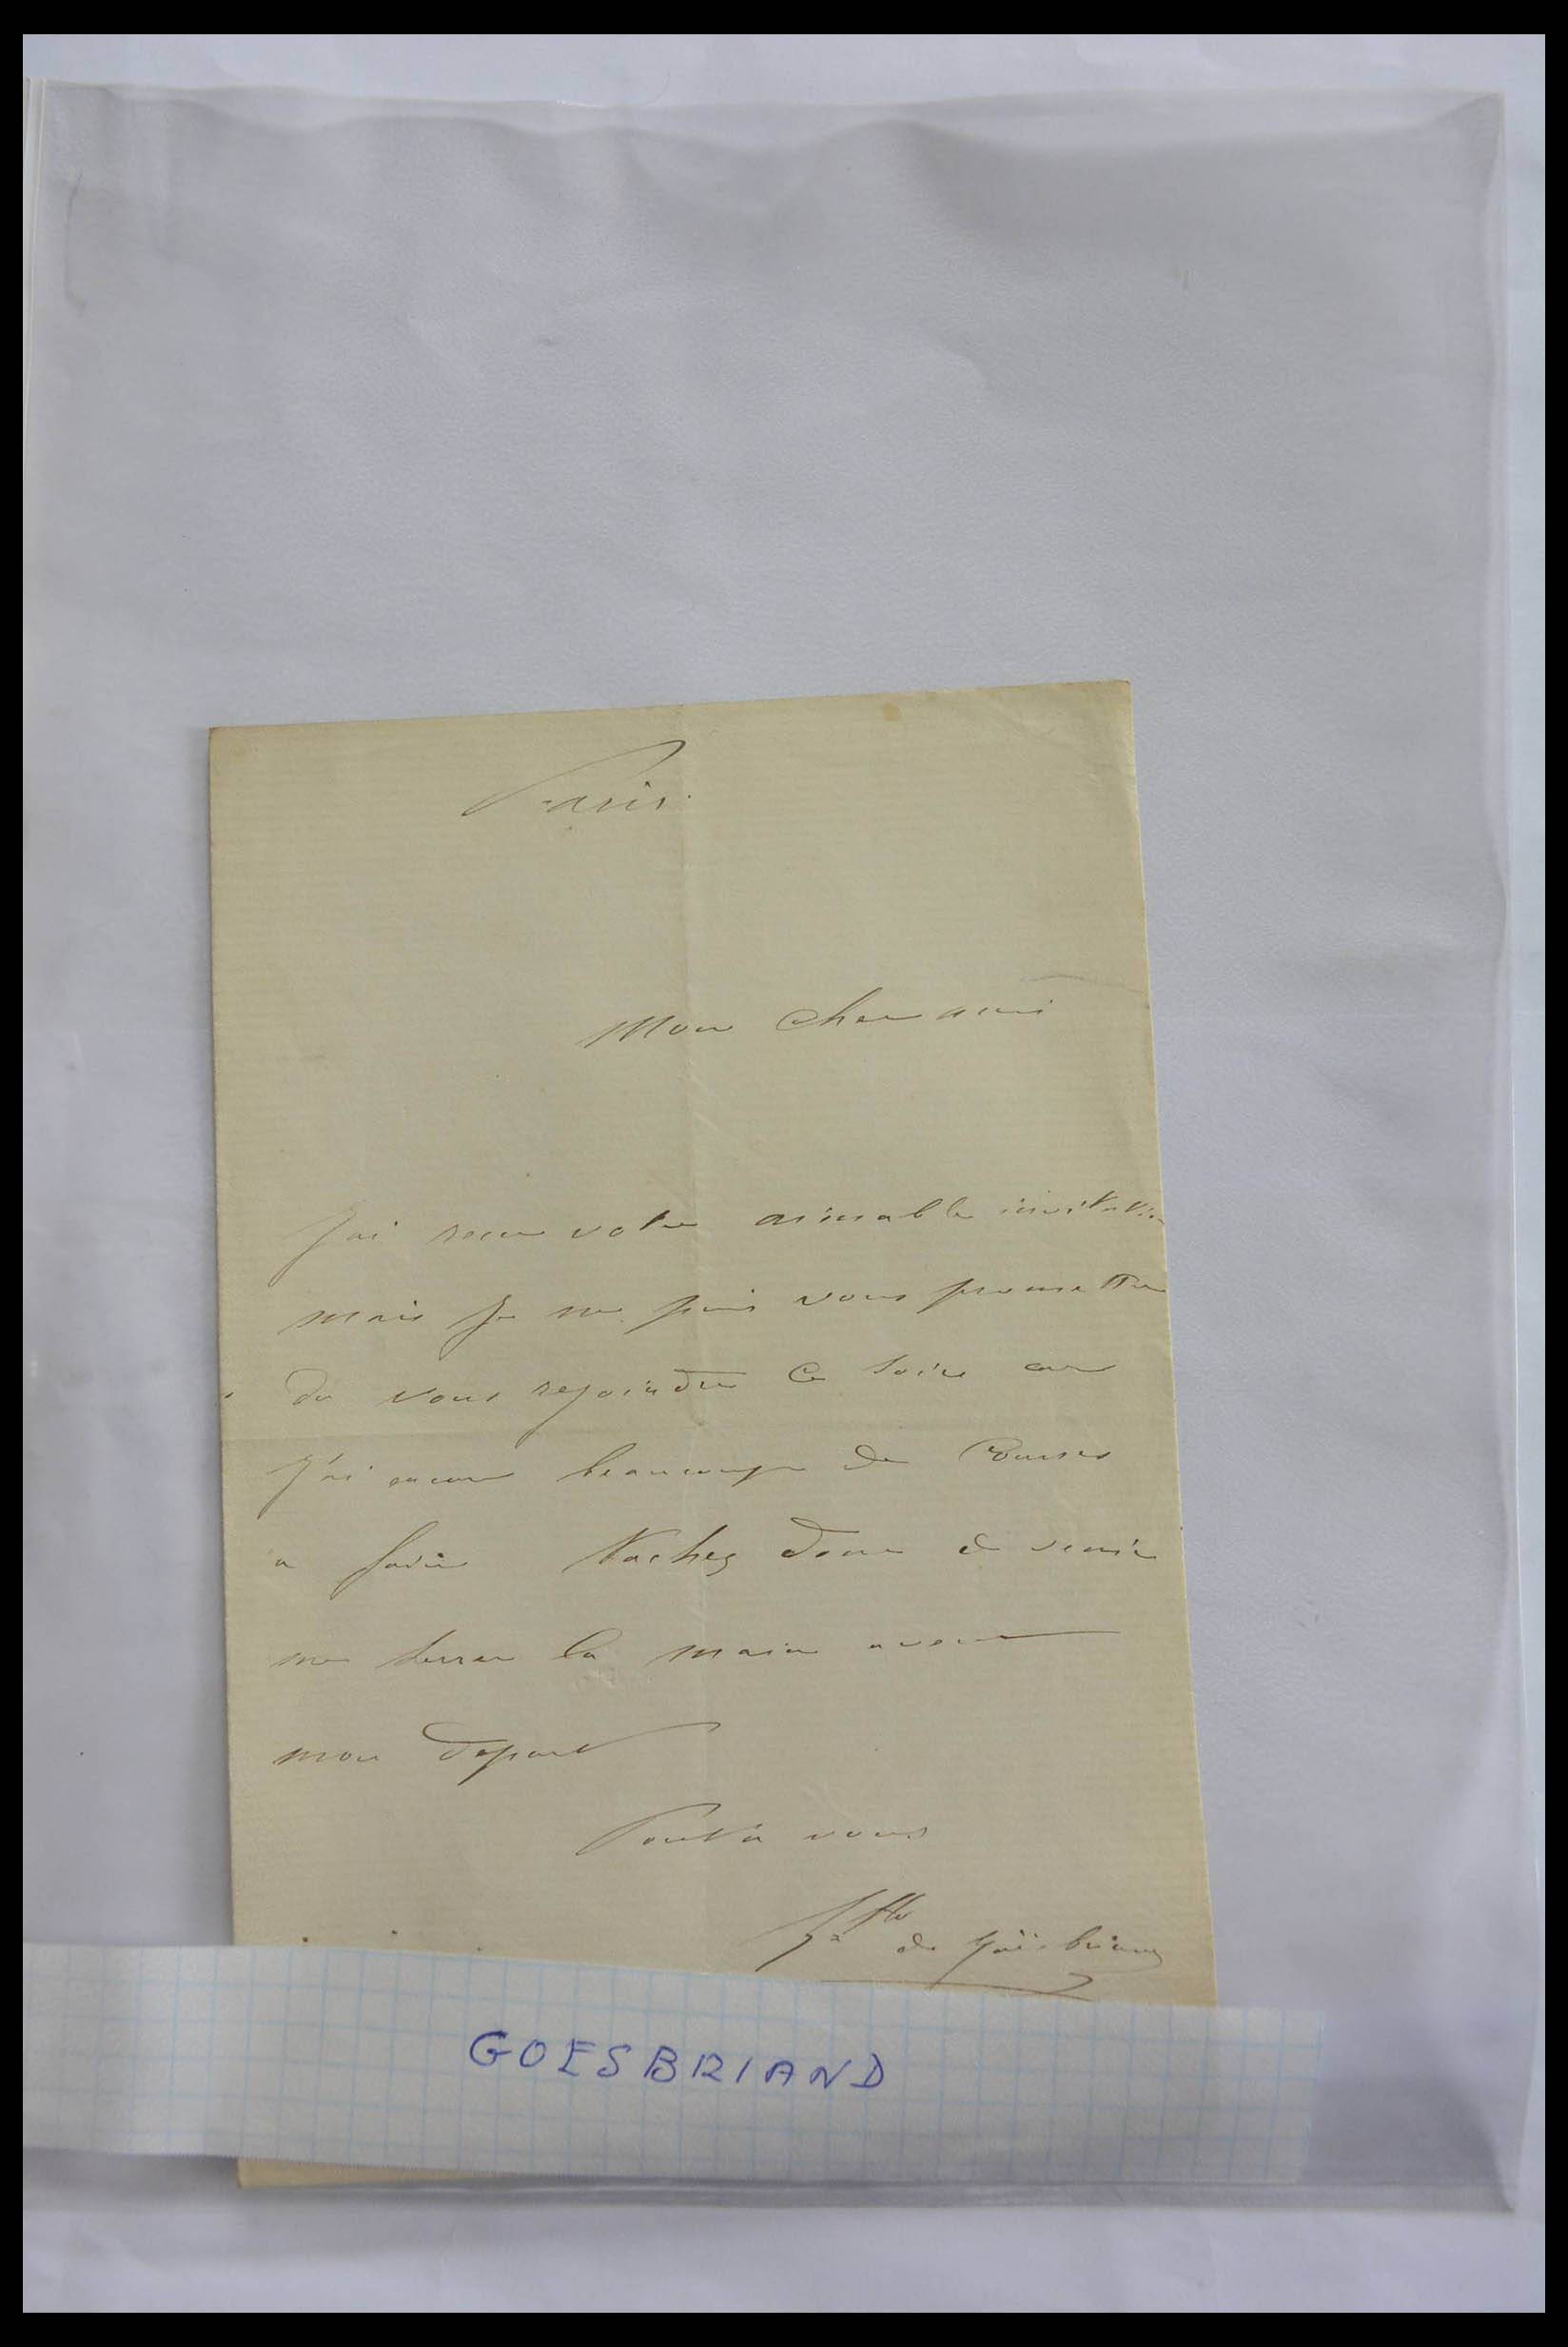 Paris
Mon cher ami
J'ai recu votre aimable invitation
mais je ne puis vous promettre
de vous rejoindre ce soir car
j'ai encore beaucoup de courses
a faire Tachez donc de venir
me serrer la main avant
mon depart
Tout a vous
de Goësbriand
GOESBRIAND